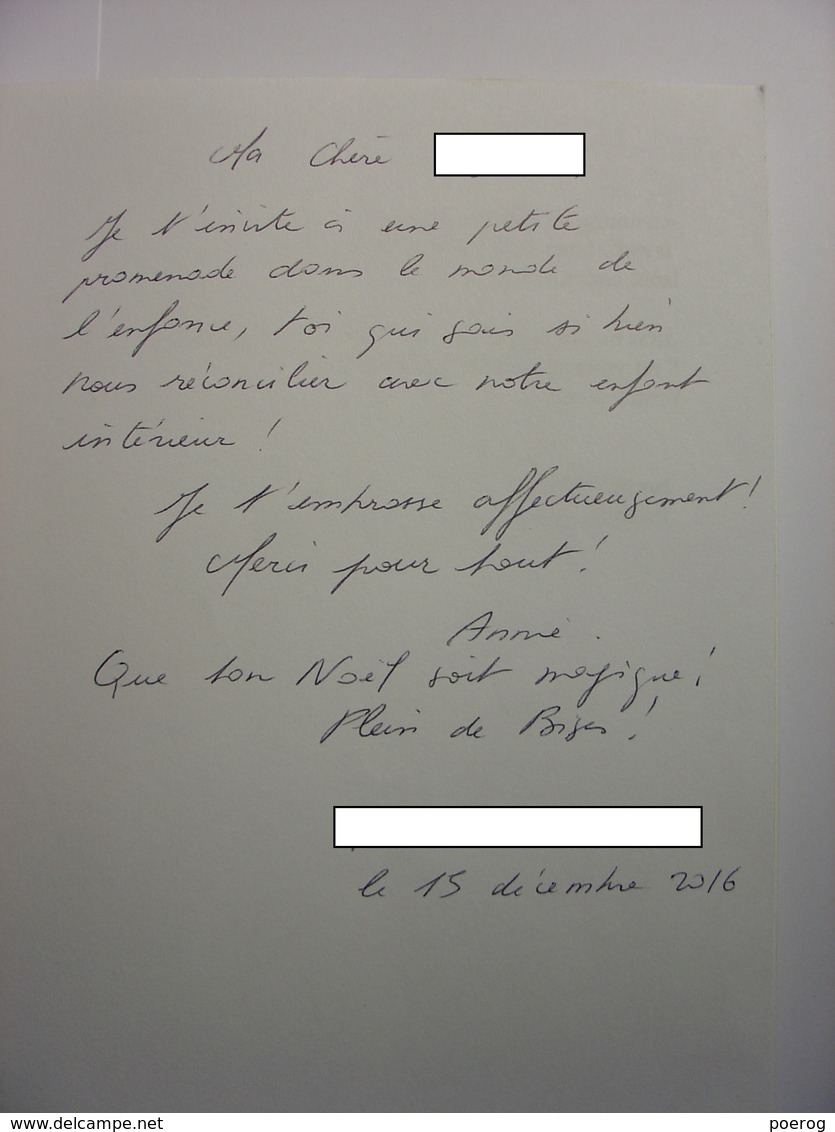 Ma Chère
Je t'invite à une petite
promenade dans le monde de
l'enfance, toi qui sais si bien
nous réconcilier avec notre enfant
intérieur !
Je t'embrasse affectueusement !
Merci pour tout !
Annie.
Que ton Noël soit magique !
Plein de Bises !
le 15 décembre 2016
www.delcampe.net
poerog